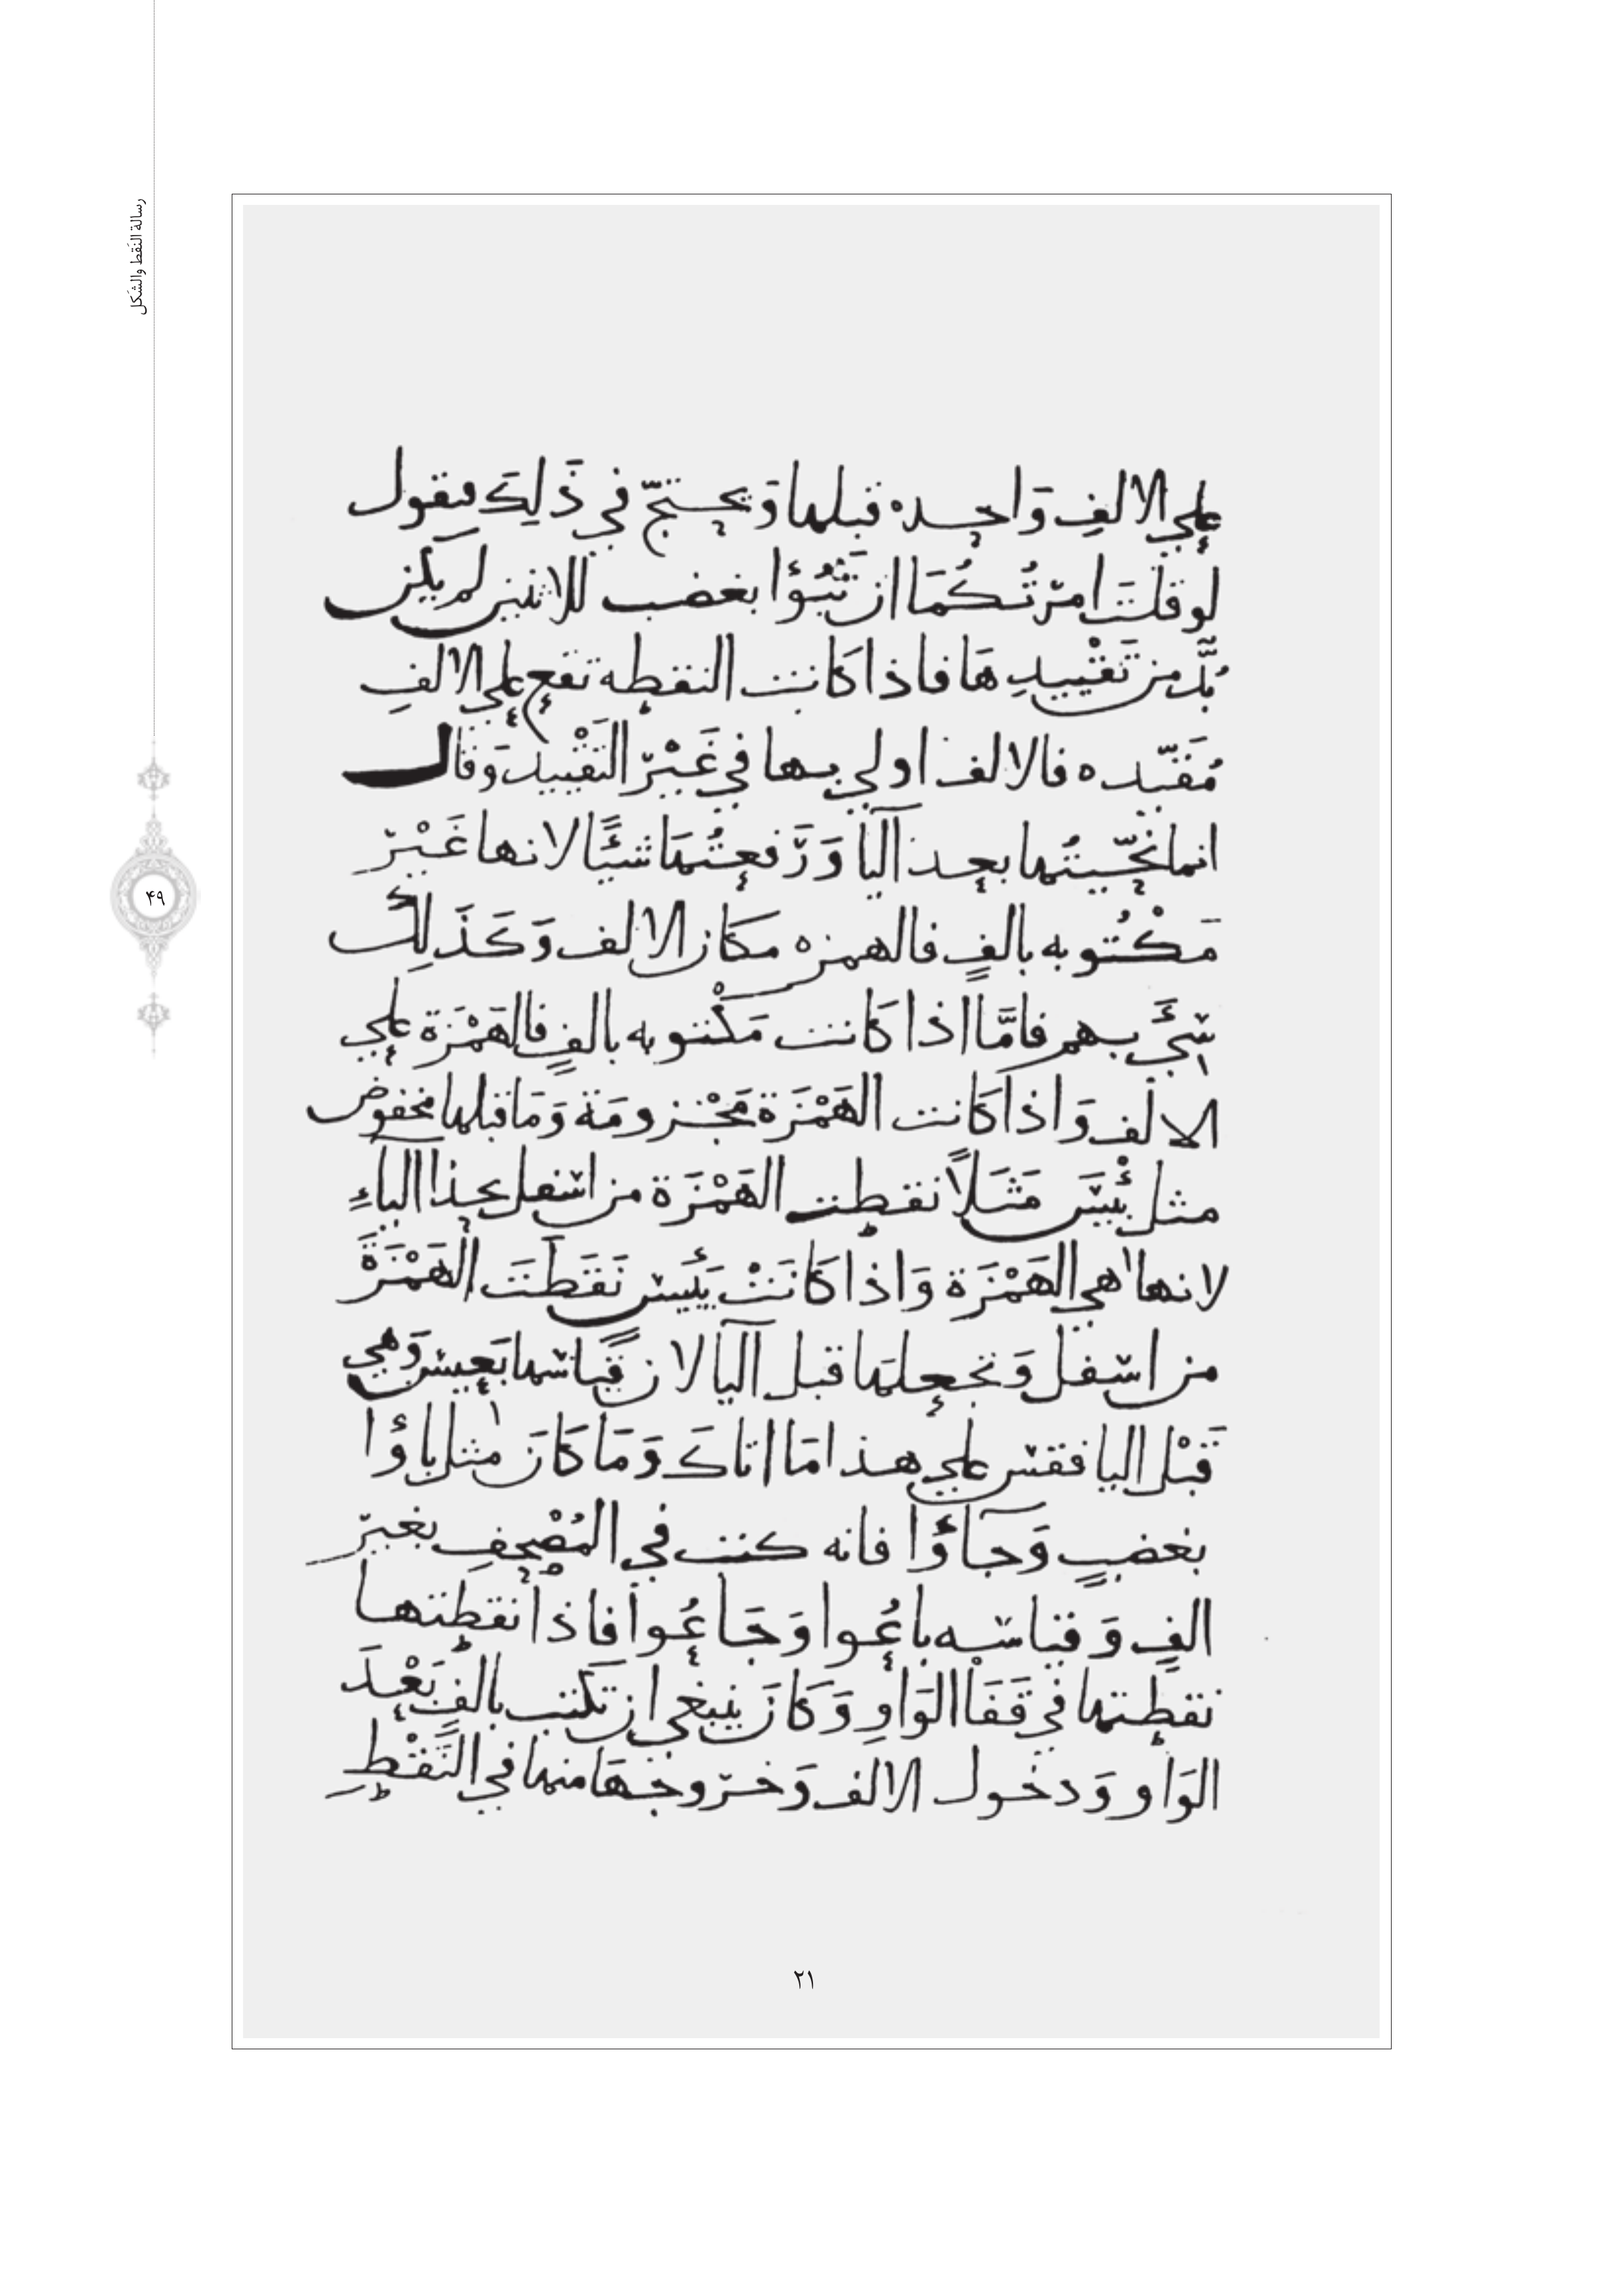 رسالة النَقط والشَكل
على الالفِ وَاحده قبلها وَيحتجّ في ذَلِكَ فيقول
لو قلتَ امرْتُكُمَا ان تَبُوؤا بغضب للاثنين لم يكن
بُدٌّ من تَقْييدِهَا فاذا كانت النقطه تقع على الالفِ
مُقَيّده فالالف اولى بها في غَيْرِ التقْييد وَقال
انما نَحّيتُها بعد اليا وَرَفعتُهَا شيئًا لانها غَيْر
مكْتُوبه بالفٍ فالهمزه مكان الالف وَكَذَلِك
سيَ بهم فامَّا اذا كانت مَكْتوبه بالفٍ فالهَمْزَة على
الالف وَاذا كانت الهَمْزَة مَجْزومَة وَمَا قبلها مخفوض
مثل بِئْسَ مَثَلاً نقطت الهَمْزَة من اسْفل بحذا الياءِ
لانها هي الهَمْزَة وَاذا كَانَتْ بَئِيس نَقَطْتَ الهَمْزَةَ
من اسْفل وَتجعلهَا قبل اليا لان قياسها بَعِيس وَهي
قَبْل اليا فقس على هذا مَا اتاكَ وَمَا كَانَ مثل باؤا
بغضبٍ وَجاؤا فانه كتب في المُصْحفِ بغير
الفٍ وَقياسه باعُوا وَجَاعُوا فاذا نقطتها
نقطتها في قَفَا الوَاوِ وَكَانَ ينبغي ان تكتب بالفٍ بَعْدَ
الوَاو وَدخول الالف وَخروجهَا منها في النَّقْطِ
۲۱
۴۹